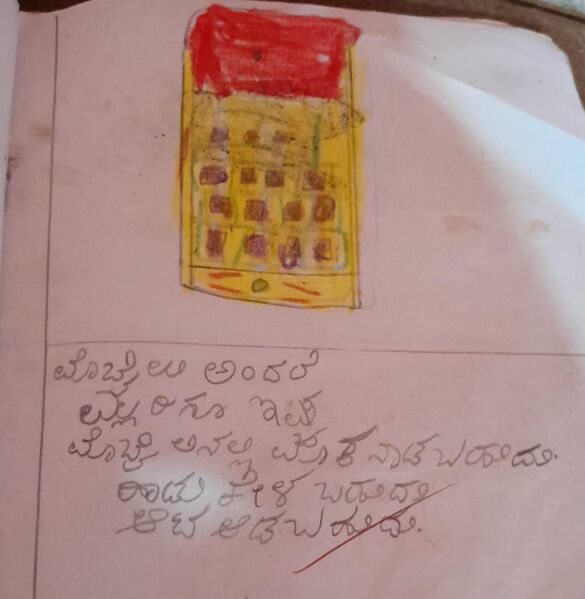 ಮೊಬೈಲು ಅಂದರೆ
ಎಲ್ಲರಿಗೂ ಇಷ್ಟ
ಮೊಬೈಲಿನಲ್ಲಿ ಮಾತನಾಡಬಹುದು.
ಹಾಡು ಕೇಳ ಬಹುದು
ಆಟ ಆಡಬಹುದು.